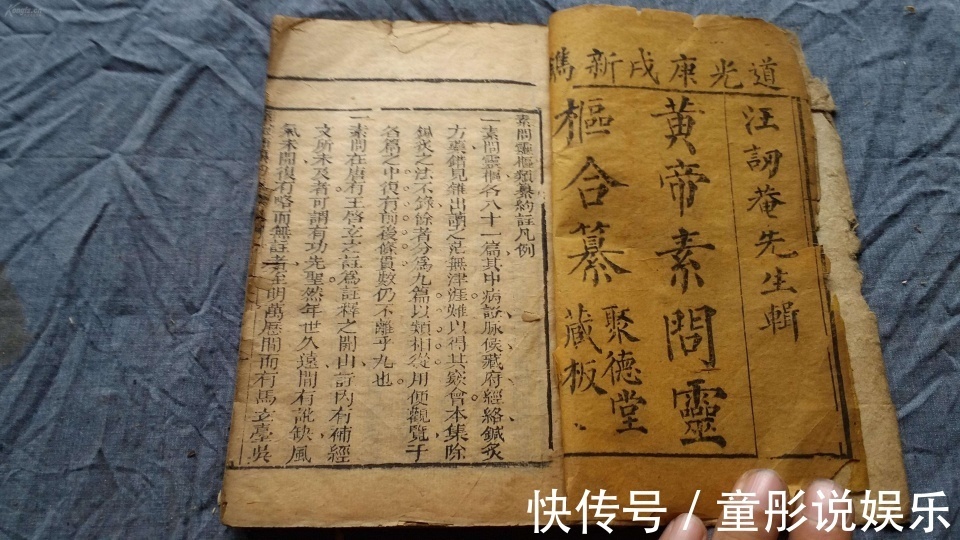 道光庚戌新鐫
汪訒菴先生輯
黃帝素問靈
樞合纂
聚德堂
藏板
素問靈樞類纂約註凡例
一素問靈樞各八十一篇其中病證脉候藏府經絡鍼灸
方藥錯見雜出讀之茫無津涯難以得其窾會本集除
鍼灸之法不錄餘者分爲九篇以類相從用便觀覽于
各篇之中復有前後條貫數仍不離乎九也
一素問在唐有王啓玄之註爲註釋之開山註內有補經
文所未及者可謂有功先聖然年世久遠間有訛缺風
氣未開復有略而無註者至明萬歷間而有馬玄臺吳
快传号 / 童彤说娱乐